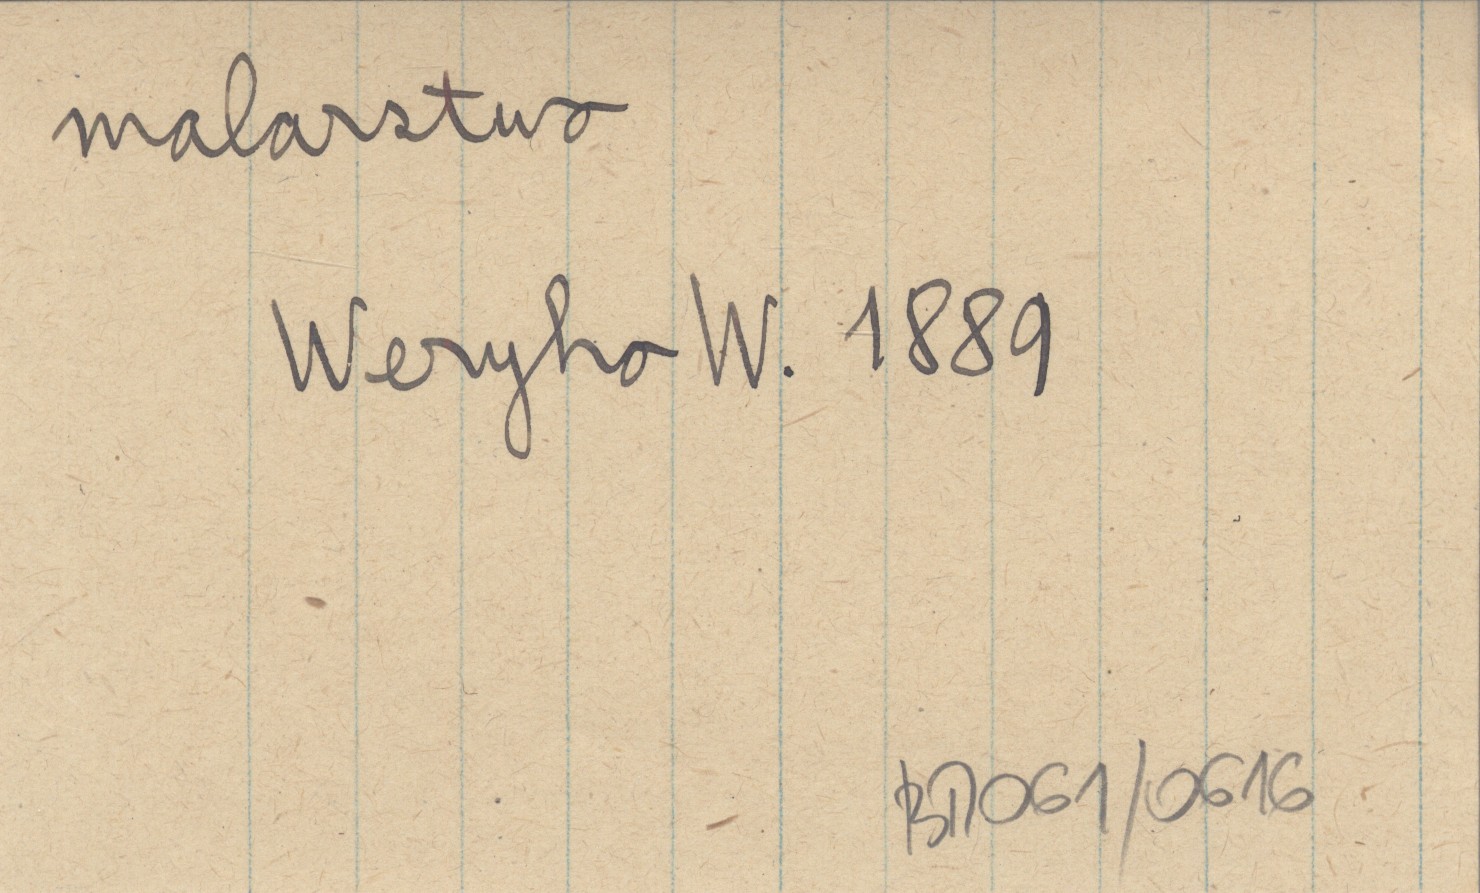 malarstwo
Weryho W. 1889
BN061/0616